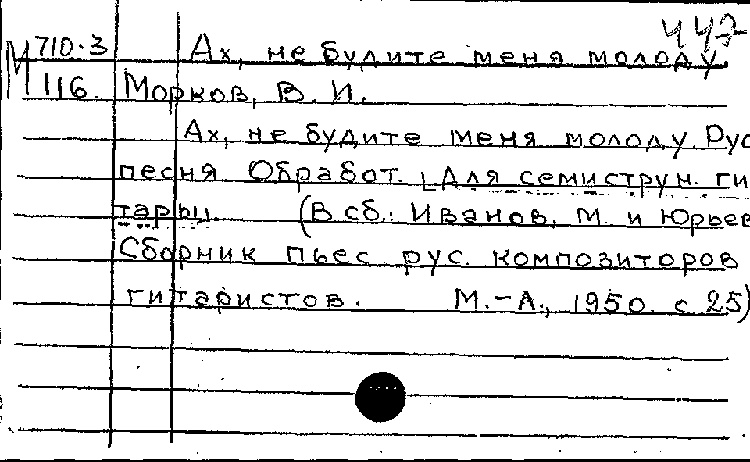 447
М 710.3 Ах, не будите меня молоду.
116. Морков, В. И.
Ах, не будите меня молоду. Рус
песня Обработ. Для семиструн. ги
тары. (В сб.: Иванов, М. и Юрьев
Сборник пьес рус. композиторов
гитаристов. М.-Л., 1950. с 25)